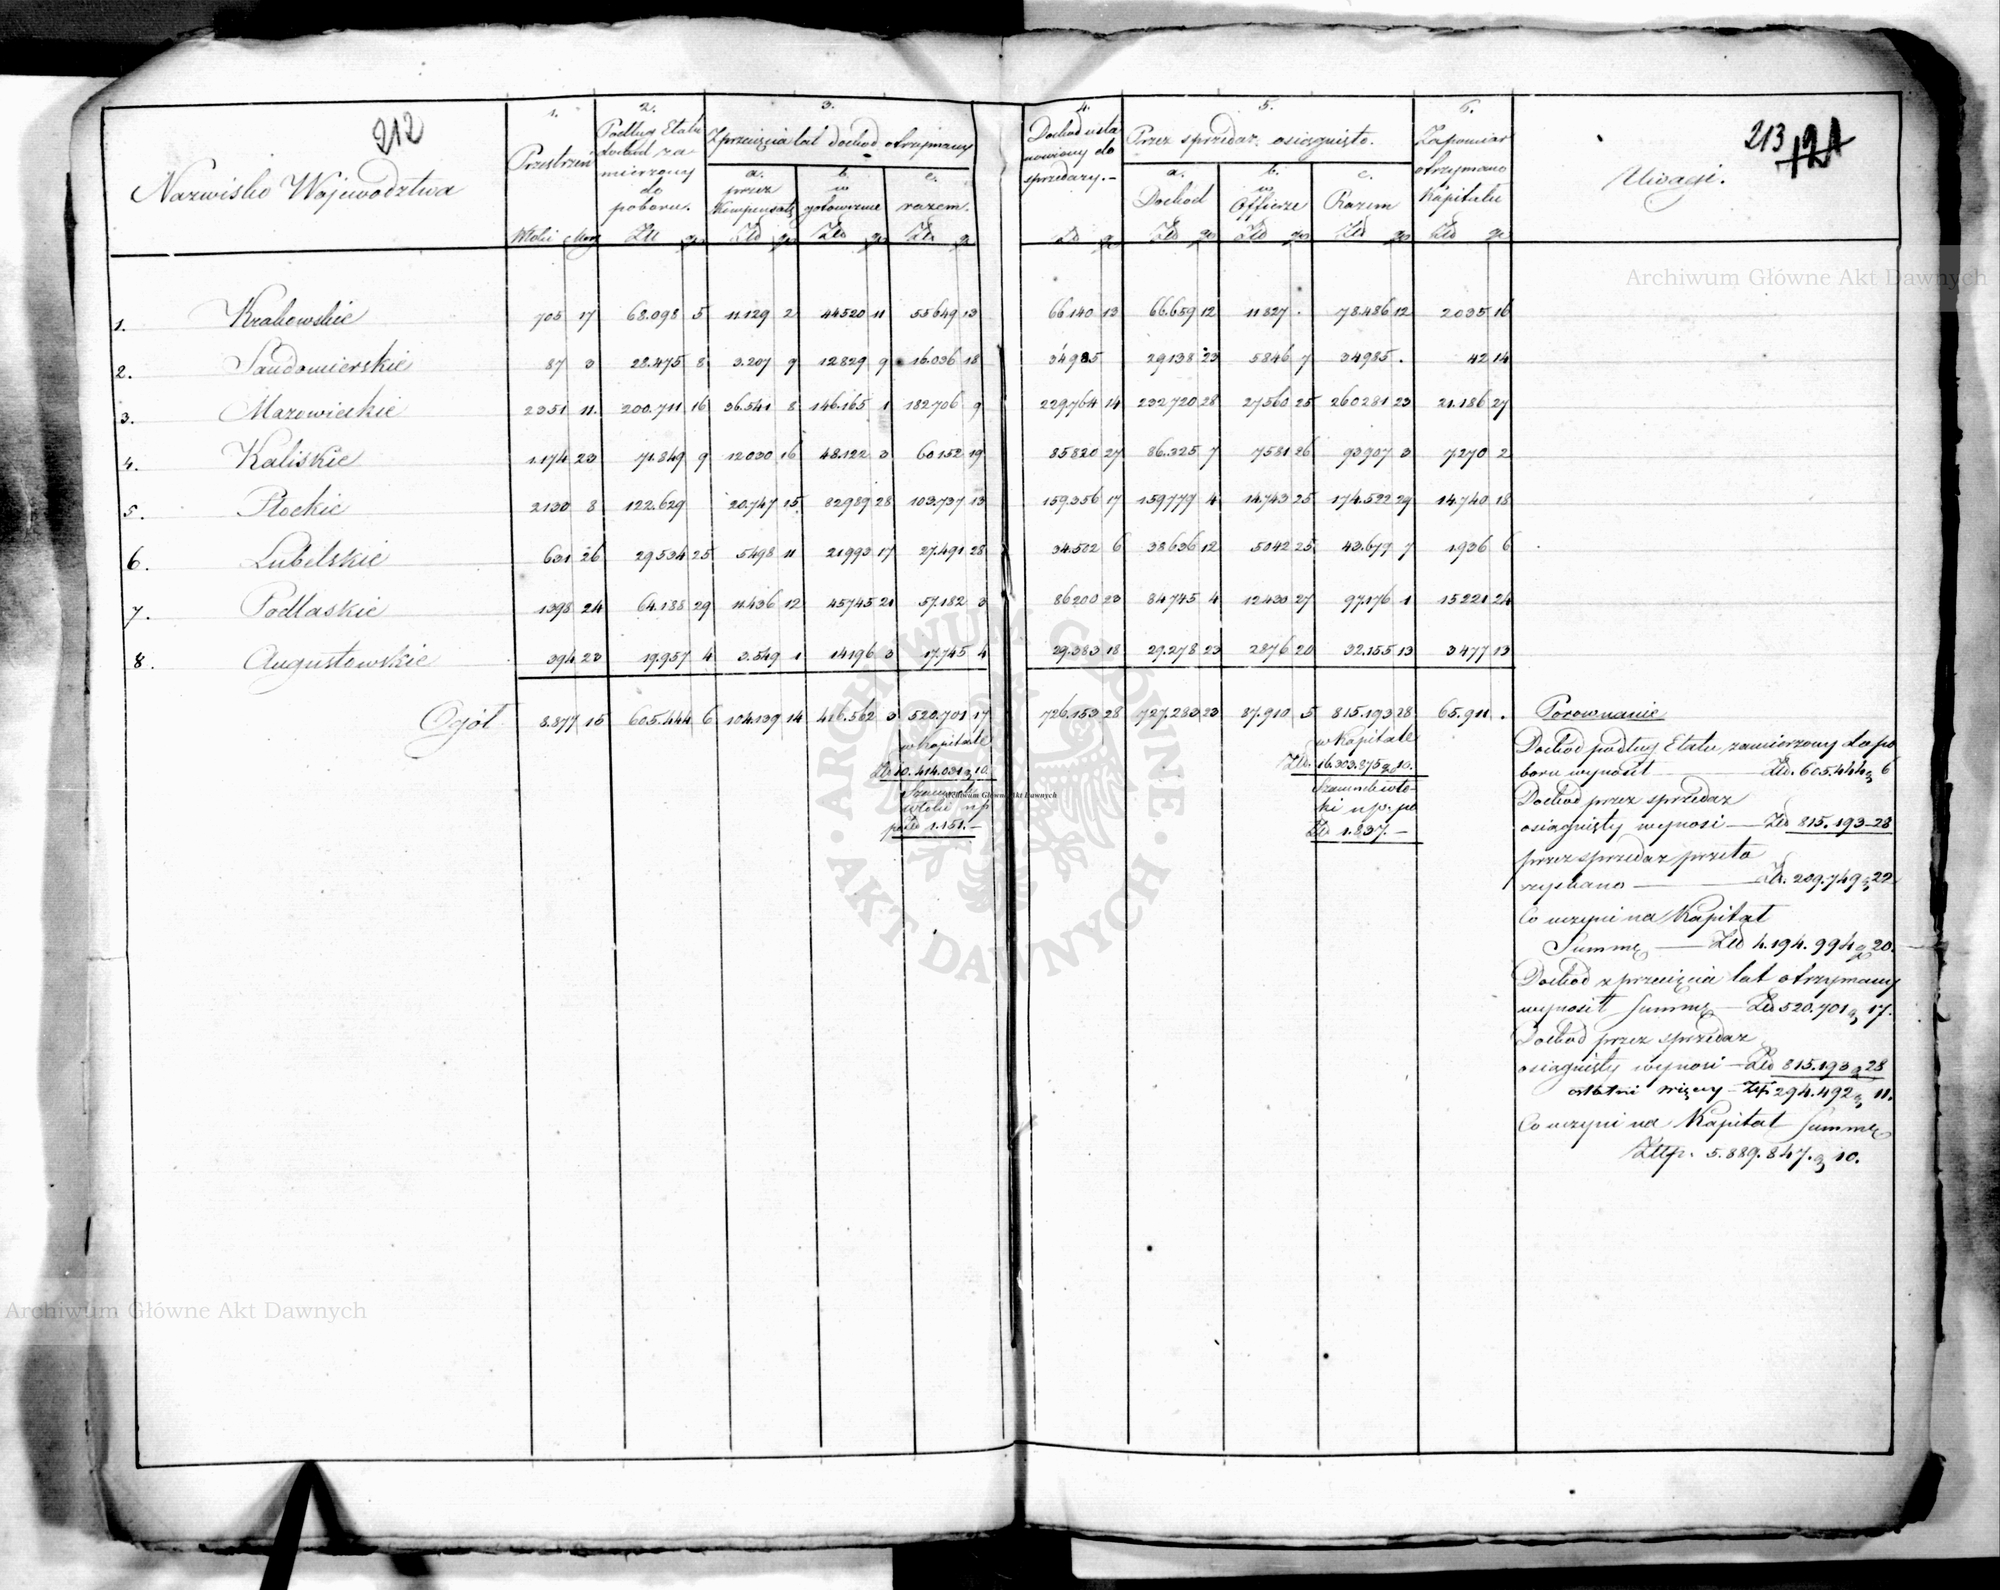 212
213
121
Nazwisko Województwa
1.
Przestrzeń
Włóki Morg
2.
Podług Etatu
dochód za-
mierzony
do
poboru.
Złt gr
3.
Z przecięcia lat dochód otrzymany
a.
przez
Kompensatę
Złt gr
b.
w
gotowiznie
Złt gr
c.
razem.
Złt gr
4.
Dochód usta
nowiony do
sprzedaży.-
Zł gr
5.
Przez sprzedaż osiągnięto.
a.
Dochód
Złt gr
b.
w
Offierze
Złt gr
c.
Razem
Złt gr
6.
Zapomiar
otrzymano
Kapitału
Złt gr
Uwagi.
1. Krakowskie 705 17 68.098 5 11.129 2 44520 11 55649 13 66.140 13 66.659 12 11827 . 78.486 12 2035 16
2. Sandomierskie 87 3 28.475 8 3.207 9 12829 9 16.036 18 34985 29138 23 5846 7 34985 . 42 14
3. Mazowieckie 2351 11. 200.711 16 36.541 8 146.165 1 182706 9 229.764 14 232720 28 27560 25 260281 23 21.186 27
4. Kaliskie 1.174 23 71.849 9 12030 16 48.122 3 60152 19 85820 27 86.325 7 7581 26 93907 3 7270 2
5. Płockie 2130 8 122.629 20.747 15 82989 28 103.737 13 159.356 17 159779 4 14.743 25 174.522 29 14.740 18
6. Lubelskie 631 26 29534 25 5498 11 21993 17 27.491 28 34.502 6 38636 12 5042 25 43.679 7 1936 6
7. Podlaskie 1398 24 64.188 29 11.436 12 45745 21 57.182 3 86200 23 84745 4 12430 27 97.176 1 15221 24
8. Augustowskie 394 23 19.957 4 3.549 1 14196 3 17.745 4 29.383 18 29.278 23 2876 20 32.155 13 3477 13
Ogół 8.877 15 605.444 6 104.139 14 416.562 3 520.701 17 726.153 28 727.283 23 87.910 5 815.193 28 65.911 .
w Kapitale
Złt 10.414.031 g 10
włóki n p
po Złt 1.151.-
w Kapitale
Złt. 16.303.875 g 10.
Szacunek wło-
ki n.p. po
Złt 1.837.-
Porownanie
Dochód podług Etatu zamierzony do po
boru wynosił — Złt. 605.444 g 6
Dochód przez sprzedaż
osiągnięty wynosi — Złt 815.193-28
przez sprzedaż przeto
zyskano — Złt. 209.749 g 22
Co uczyni na Kapitał
Summę — Złt 4.194.994 g 20.
Dochód z przecięcia lat otrzymany
wynosił Summę — Złt 520.701 g 17.
Dochód przez sprzedaż
osiągnięty wynosi — Złt 815.193 g 28
ostatni więcey — Złp 294.492 g 11.
Co uczyni na Kapitał Summę
Złtp. 5.889.847. g 10.
Archiwum Główne Akt Dawnych
Archiwum Główne Akt Dawnych
Archiwum Główne Akt Dawnych
ARCHIWUM GŁÓWNE · AKT DAWNYCH ·